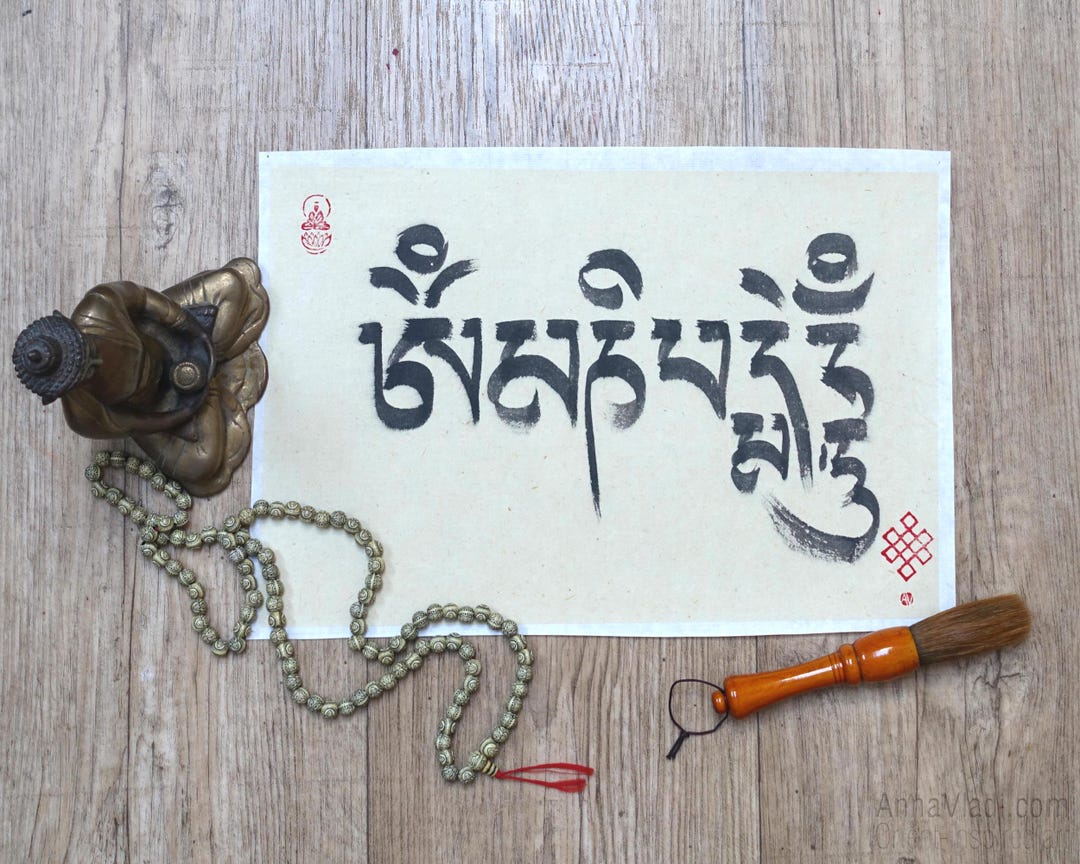 ཨོཾམཎིཔདྨེཧཱུྃ
AnnaVladi.com